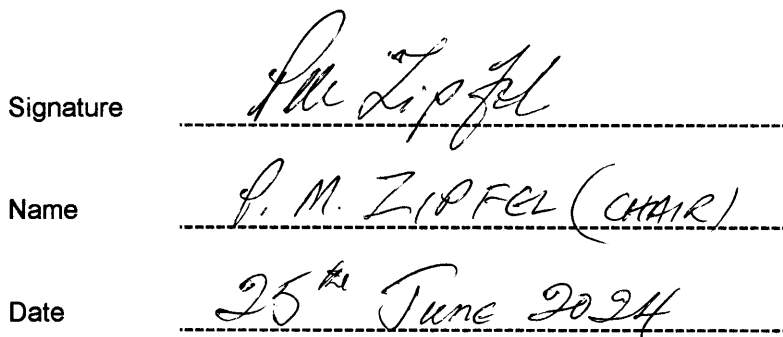 Signature PM Zipfel
Name P. M. ZIPFEL (CHAIR)
Date 25th June 2024